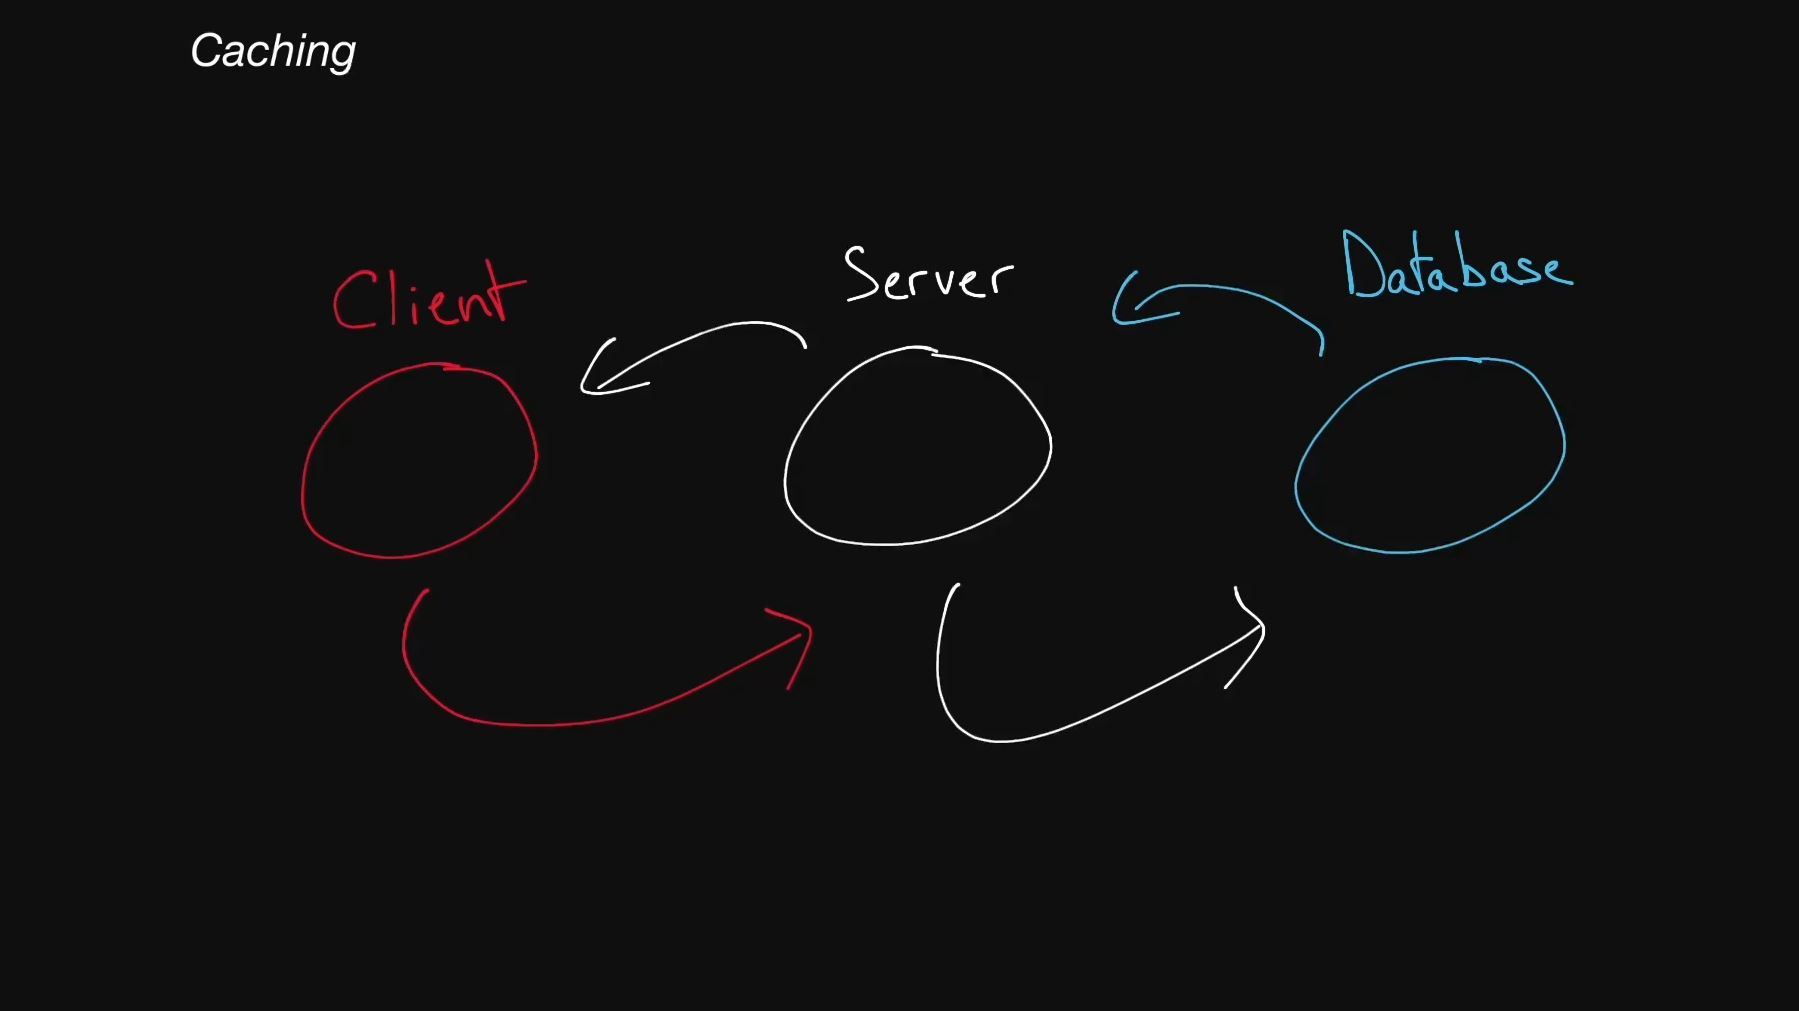 Caching
Client
Server
Database